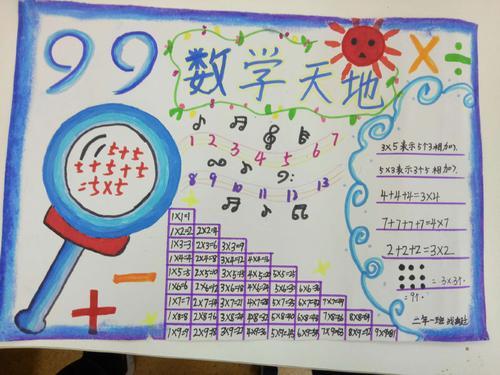 99 数学天地 × ÷
5+5
5+5+5
=5×5
1 2 3 4 5 6 7
8 9 10 11 12 13
3×5表示5个3相加.
5×3表示3个5相加.
4+4+4=3×4
7+7+7+7=4×7
2+2+2=3×2
=3×3个
=9个.
1×1=1
1×2=2 2×2=4
1×3=3 2×3=6 3×3=9
1×4=4 2×4=8 3×4=12 4×4=16
1×5=5 2×5=10 3×5=15 4×5=20 5×5=25
1×6=6 2×6=12 3×6=18 4×6=24 5×6=30 6×6=36
1×7=7 2×7=14 3×7=21 4×7=28 5×7=35 6×7=42 7×7=49
1×8=8 2×8=16 3×8=24 4×8=32 5×8=40 6×8=48 7×8=56 8×8=64
1×9=9 2×9=18 3×9=27 4×9=36 5×9=45 6×9=54 7×9=63 8×9=72 9×9=81
− +
二年一班